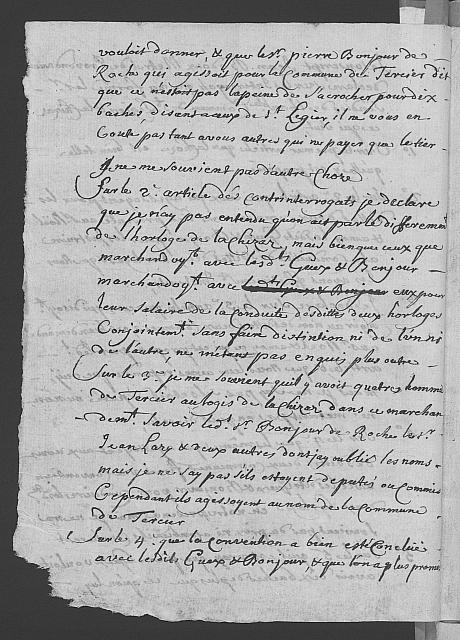 vouloit donner, & que le Sr. pierre Bonjour de
Roche qui agissoit pour la Commune de Tercier dit
que ce n'estoit pas la peine de sacrocher pour dix
baches, disent a ceux de St. Legier, il ne vous en
Coute pas tant a vous autres qui ne payer que le tier-
Je ne me souvient pas d'autre Chose
Sur le 2e. article des contrinterrogats je declare
que je n'ay pas entendu qu'on ait parlé differemm
de l'horloge de la Chizaz, mais bien que ceux que
marchandoyt. avec lesdts. Guex & Bonjour
marchandoyt. avec lesdts Guex & Bonjour eux pour
leur salaire de la conduite desdittes deux horloges
Conjointemt. sans faire distintion ni de l'un ni
de l'autre, ne m'etant pas enquis plus outre-
Sur le 3e. je me souvient qu'il y avoit quatre homme
de Tercier au logis de la Chizaz dans ce marchan
demt. Savoir ledt. Sr. Bonjour de Roche le Sr.
Jean Lary & deux autres dont jay oublié les noms-
mais je ne say pas s'ils estoyent deputés ou Commis
Cependant ils agissoyent au nom de la Commune
de Tercier
Sur le 4. que la Convention a bien esté Conclüe
avec lesdits Guex & Bonjour, & que l'on a plus promi